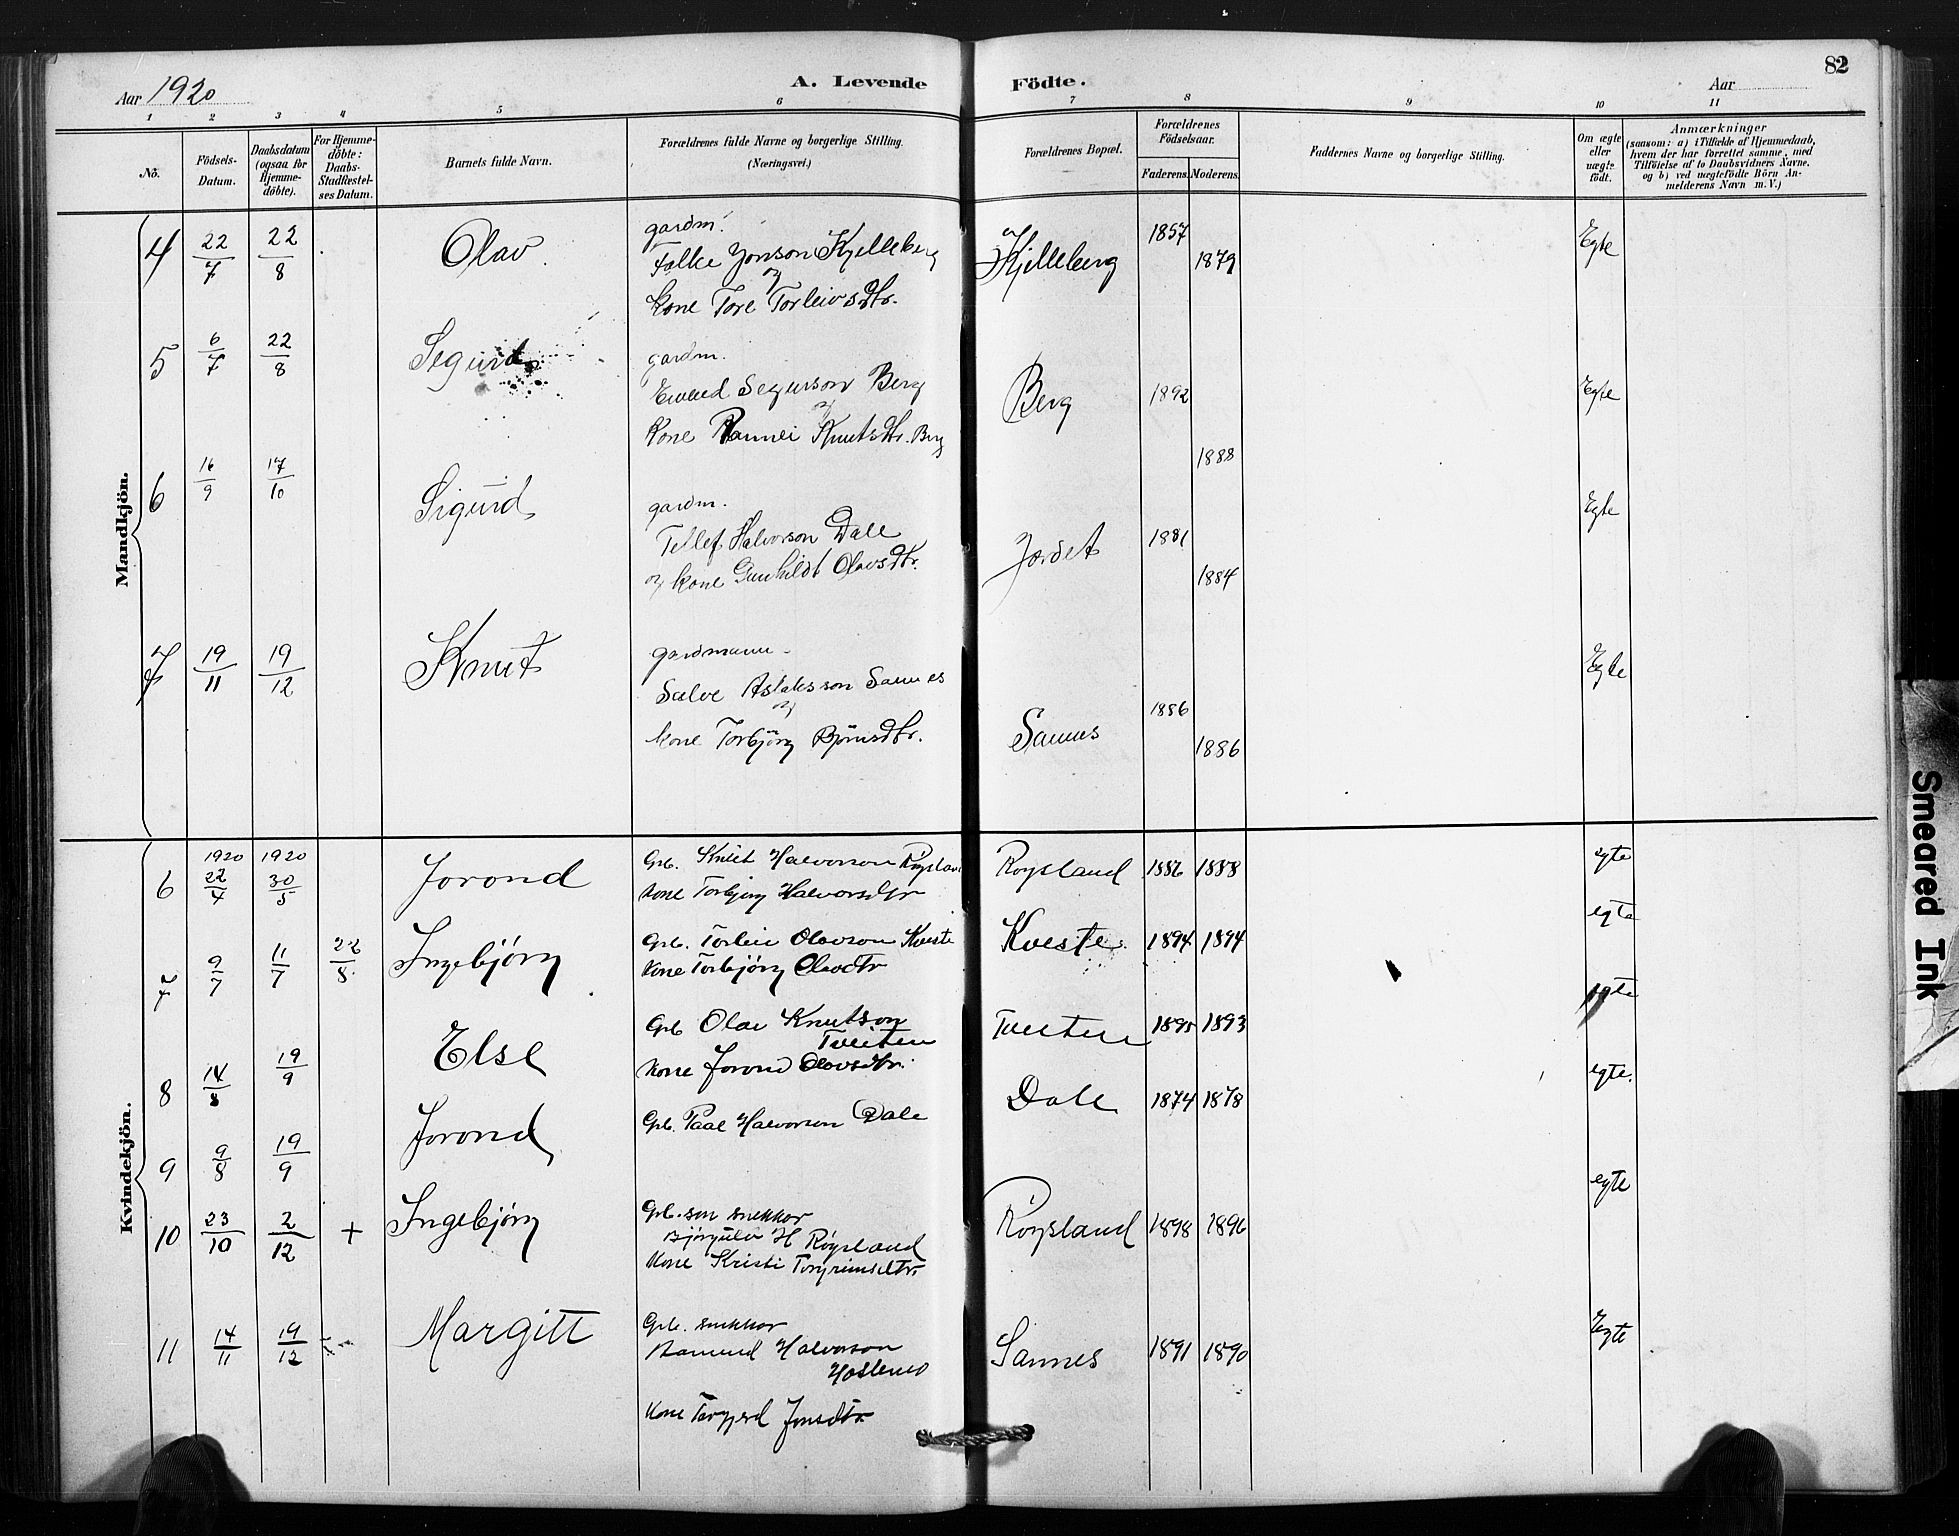 Aar 1920
A. Levende Födte.
Aar
82
1 2 3 4 5 6 7 8 9 10 11
No.
Födsels-Datum.
Daabsdatum (ogsaa for Hjemme-döbte).
For Hjemme-döbte: Daabs-Stadfæstel-ses Datum.
Barnets fulde Navn.
Forældrenes fulde Navne og borgerlige Stilling. (Næringsvei.)
Forældrenes Bopæl.
Forældrenes Födselsaar.
Faderens. Moderens.
Faddernes Navne og borgerlige Stilling.
Om ægte eller uægte födt.
Anmærkninger
(saasom: a) i Tilfælde af Hjemmedaab, hvem der har forrettet samme, med Tilföielse af to Daabsvidners Navne, og b) ved uægtefödte Börn Anmelderens Navn m. V.)
Mandkjön.
4 22/7 22/8 Olav gardm. Kjelleberg 1857 1879 Egte
Folke Jonson Kjelleberg
og
kone Tore Torleivsdtr.
5 6/7 22/8 Segurd gardm. Berg 1892 1888 Egte
Segurson Berg
og
kone Rannei Knutsdtr. Berg
6 16/9 17/10 Sigurd gardm. Jordet 1881 1884 Egte
Tellef Halvorson Dale
og kone Gunhildt Olavsdtr.
7 19/11 19/12 Knut gardmann Sannes 1886 1886 Egte
Salve Aslaksson Sannes
og
kone Torbjörg Björnsdtr.
Kvindekjön.
1920 1920
6 22/4 30/5 Jorond Grb. Knut Halvorson Röysland Roysland 1886 1888 egte
kone Torbjörg Halvorsdtr
7 9/7 11/7 22/8 Ingebjörg Grb. Torleiv Olavson Kveste Kveste 1894 1894 egte
kone Torbjörg Olavdtr
8 14/8 19/9 Else Grb Olav Knutson Tveiten Tveiten 1893 egte
kone Jorond Olavsdtr.
9 9/8 19/9 Jorond Grb. Paal Halvorson Dale Dale 1874 1878 egte.
10 23/10 2/12 + Ingebjörg Grb. son snekkar Röysland 1898 1896 egte
Bjørgulv H Røysland
kone Kristi Torgrimsdtr.
11 14/11 19/12 Margitt Grb. snekkar Sannes 1891 1890 Egte
Halvorson
kone Torgerd Jonsdtr.
Smeared Ink